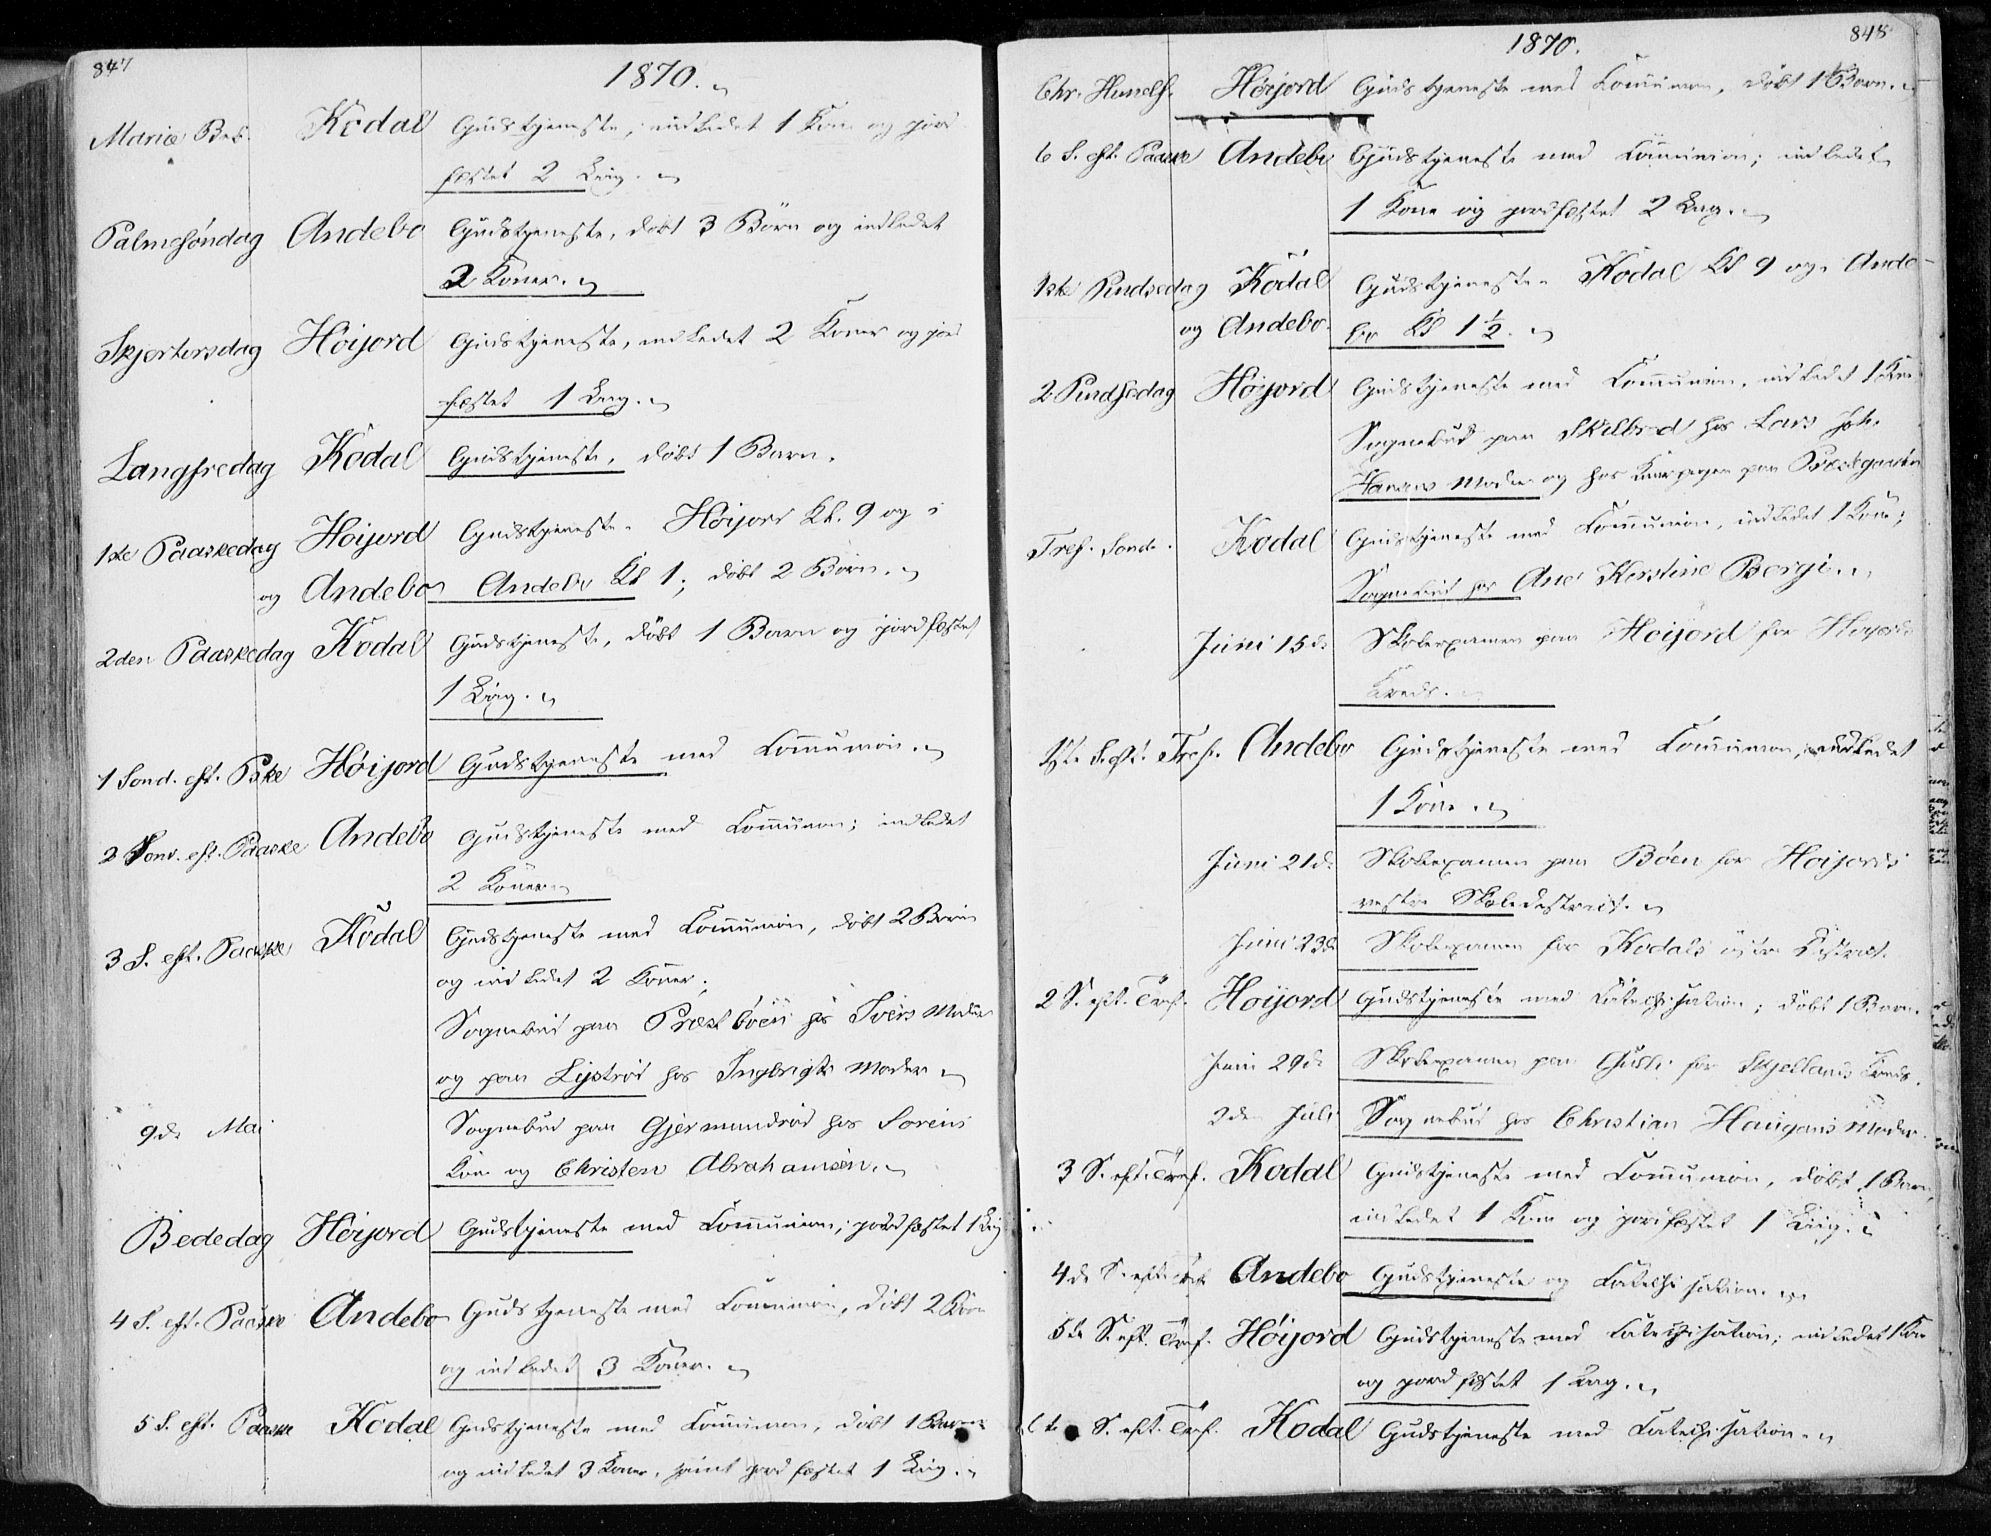 847
1870.
Mariæ Beb. Kodal Gudstjeneste, indledet 1 Kone og jord-
fæstet 2 Liig.
Palmesøndag Andebo Gudstjeneste, døbt 3 Børn og indledet
3 Koner.
Skjertorsdag Höijord Gudstjeneste, indledet 2 Koner og jord
fæstet 1 Liig.
Langfredag Kodal Gudstjeneste, døbt 1 Barn.
1ste Paaskedag Höijord Gudstjeneste i Höijord Kl. 9 og i
og Andebo Andebo Kl 1; døbt 2 Børn.
2den Paaskedag Kodal Gudstjeneste, døbt 1 Barn og jordfæstet
1 Liig.
1 Sønd. eft. Pske Höijord Gudstjeneste med Communion.
2 Sønd. eft. Paaske Andebo Gudstjeneste med Communion; indledet
2 Koner
3 S. eft. Paaske Kodal Gudstjeneste med Communion, døbt 2 Børn
og indledet 2 Koner;
Sognebud paa Præstbøen hos Ivers Moder
og paa Lystrød hos Ingbrigts Moder
9de Mai Sognebud paa Gjermundrød hos Sørens
Kone og Christen Abrahamsen.
Bededag Höijord Gudstjeneste med Communion; jordfæstet 1 Liig
4 S. eft. Paaske Andebo Gudstjeneste med Communion, døbt 2 Børn
og indledet 3 Koner.
5 S. eft. Paaske Kodal Gudstjeneste med Communion, døbt 1 Barn
og indledet 3 Koner, samt jordfæstet 1 Liig.
1870.
848
Chr. Himelf. Höijord Gudstjeneste med Communion, døbt 1 Barn.
6 S. eft. Paaske Andebo Gudstjeneste med Communion; indledet
1 Kone og jordfæstet 2 Liig.
1ste Pindsedag Kodal Gudstjeneste i Kodal Kl 9 og i Ande-
og Andebo. bo Kl 1½.
2 Pindsedag Höijord Gudstjeneste med Communion, indledet 1 Kone
Sognebud paa Skilbred hos Lars Joh.
Hansens Moder og hos paa Prestegaarden
Tref. Sønd. Kodal Gudstjeneste med Communion, indledet 1 Kone;
Sognebud hos Ane Kirstine Berge.
Juni 15de Skoleexamen paa Höijord for Höijords
Kreds.
1ste S. eft. Tref. Andebo Gudstjeneste med Communion, indledet
1 Kone.
Juni 21de Skoleexamen paa Bøen for Höijords
vestre Skoledistrict.
Juni 23de Skoleexamen for Kodals østre District.
2 S. eft. Tref. Höijord Gudstjeneste med Catechisation; døbt 1 Barn.
Juni 29de Skoleexamen paa Gulli for Skjellands Kreds.
2de Juli Sognebud hos Christian Haugans Moder.
3 S. eft. Tref. Kodal Gudstjeneste med Communion, døbt 1 Barn,
indledet 1 Kone og jordfæstet 1 Liig.
4de S. eft. Tref. Andebo Gudstjeneste og Catechisation.
5te S. eft. Tref. Höijord Gudstjeneste med Catechisation; indledet 1 Kone
og jordfæstet 1 Liig.
6te S. eft. Tref. Kodal Gudstjeneste med Catechisation.